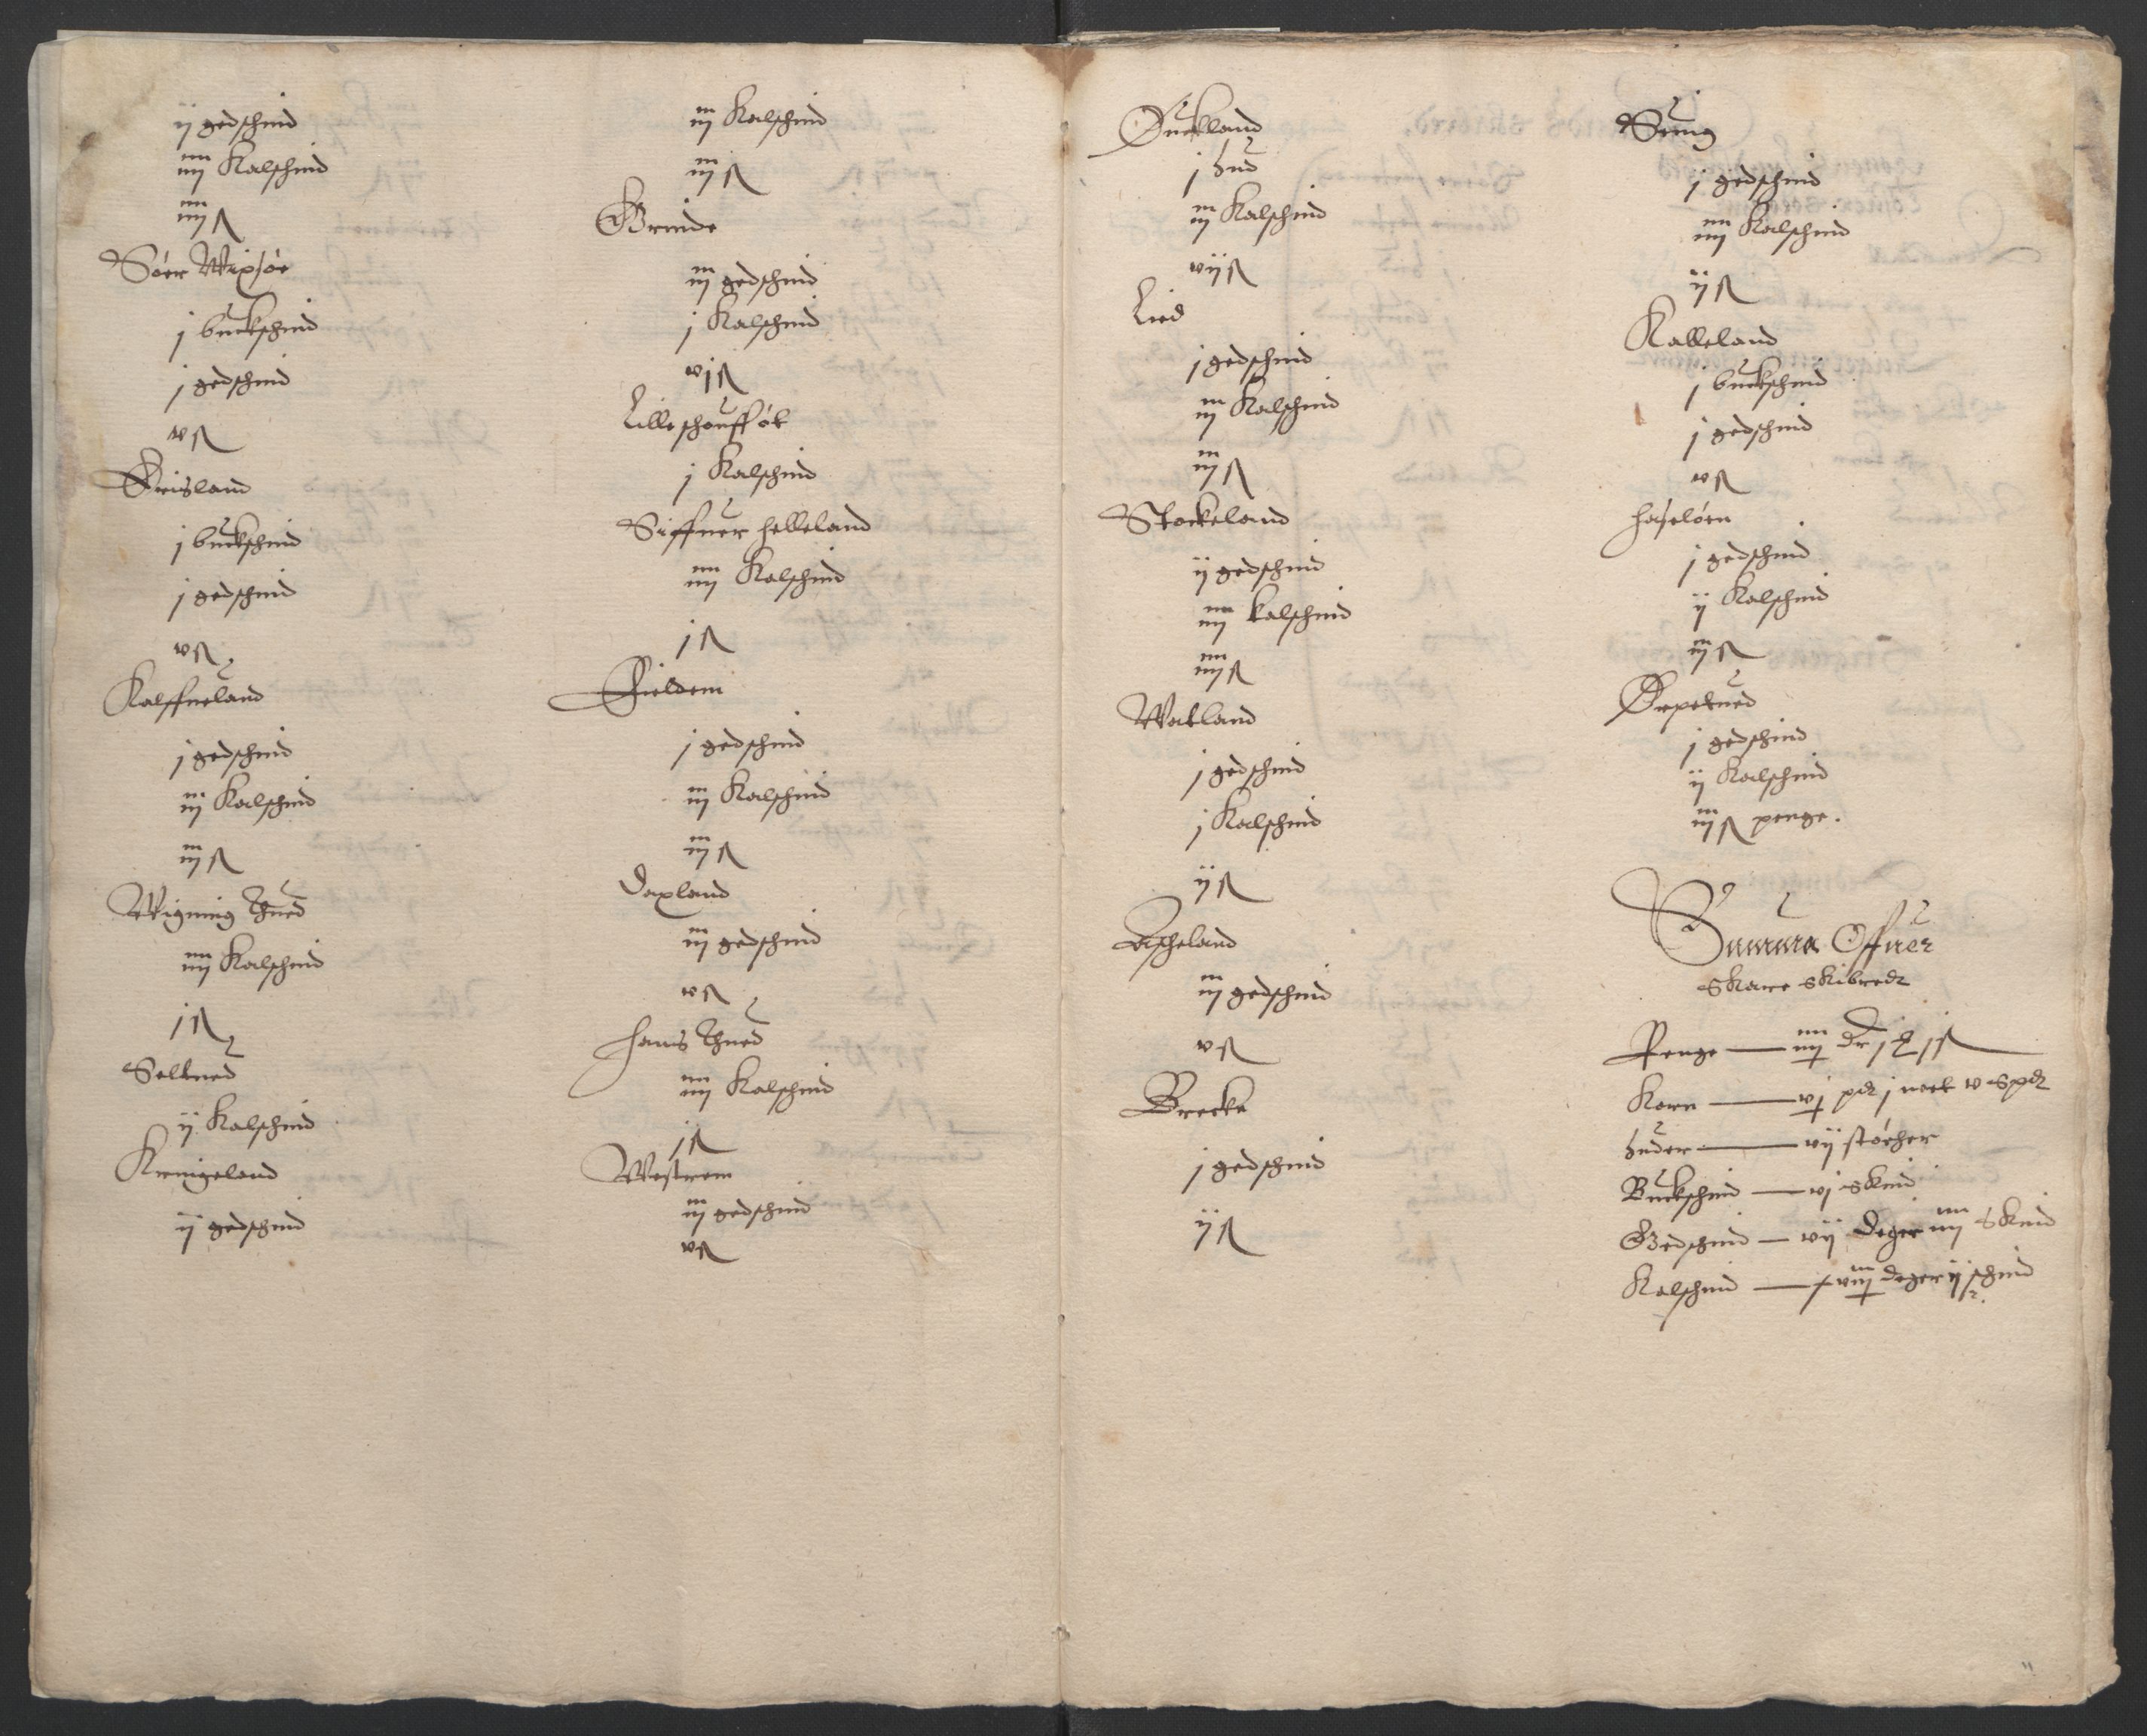 ij gedschind
iiij Kalschind
iiij ß
Söer Wixsöe
j buckschind
j gedschind
v ß
Greisland
j buckschind
j gedschind
v ß
Kalffueland
j gedschind
iij Kalschind
iij ß
Wigning thued
iiij Kalschind
j ß
Seltued
ij Kalschind
Kringeland
ij gedschind
iij Kalschind
iij ß
Grinde
iij gedschind
j Kalschind
vj ß
Lille schouffót
j Kalschind
Siffuer helleland
iiij Kalschind
j ß
Fieldem
j gedschind
iij Kalschind
iij ß
Daxland
iij gedschind
v ß
hanis thued
iiij Kalschind
j ß
Westrem
iij gedschind
v ß
Duckland
j hud
iij Kalschind
vij ß
Lied
j gedschind
iij Kalschind
iij ß
Stockeland
ij gedschind
iiij kalschind
iiij ß
Watland
j gedschind
j Kalschind
ij ß
Ascheland
iij gedschind
v ß
Brecke
j gedschind
ij ß
Suing
j gedschind
iiij Kalschind
ij ß
Kalleland
j buckschind
j gedschind
v ß
haselöen
j gedschind
ij Kalschind
iij ß
Orpetued
j gedschind
ij Kalschind
iij ß penge.
Summa Offuer
Skare skibrede
Penge — iiij dr j ß
Korn — vj pd j nock v Spd
huder — vij störcher
Buckschind — vj skind
Gedschind — vij deger iiij skind
Kalschind — xviij deger ij schind